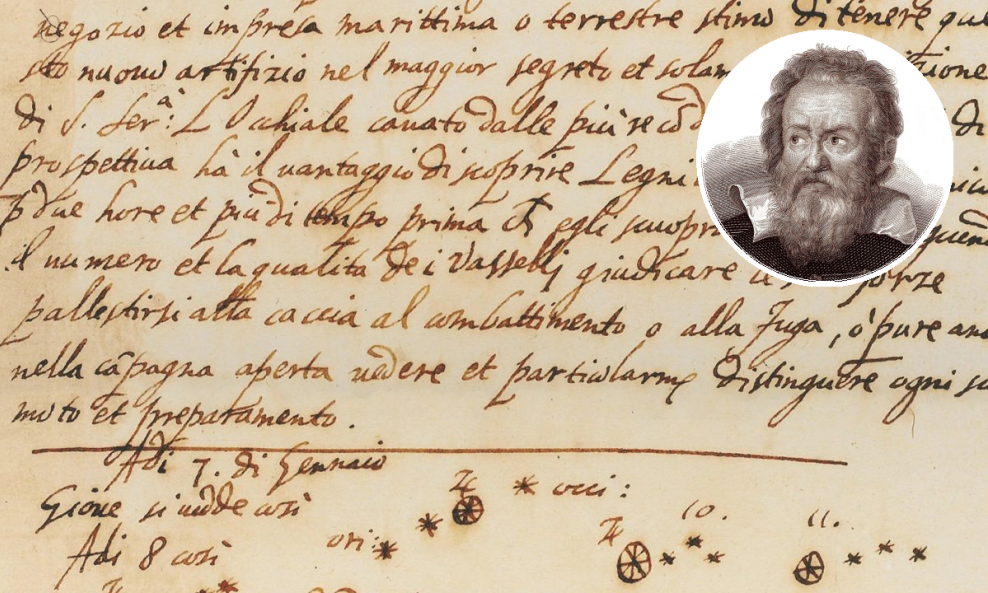 negozio et impresa marittima o terrestre stimo di tenere que
sto nuouo artifizio nel maggior segreto et solam
di S. Ser.ª L'Occhiale cauato dalle più re cōd di
prospettiua hà il uantaggio di scoprire Legni
p due hore et più di tempo prima ch egli scuopr
il numero et la qualita de i Vasselli giudicare forze
pallestirsi alla caccia al combattimento o alla fuga, ò pure
nella cāpagna aperta uedere et particularmᵉ distinguere ogni
moto et preparamento.
Adi 7. di Gennaio
Gioue si uedde cosi ♃ * occi:
Adi 8 cosi ori: * * ♃ 10. * * * 11. * * *
♃